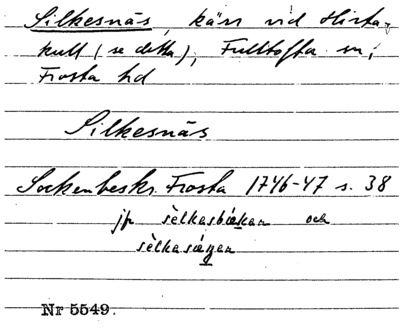 Silkesnäs, kärr vid Hirta-
kull (se detta), Fulltofta sn,
Frosta hd
Silkesnäs
Sockenbeskr. Frosta 1746-47 s. 38
jfr sèlkasbækan och
sèlkasængan
Nr 5549.